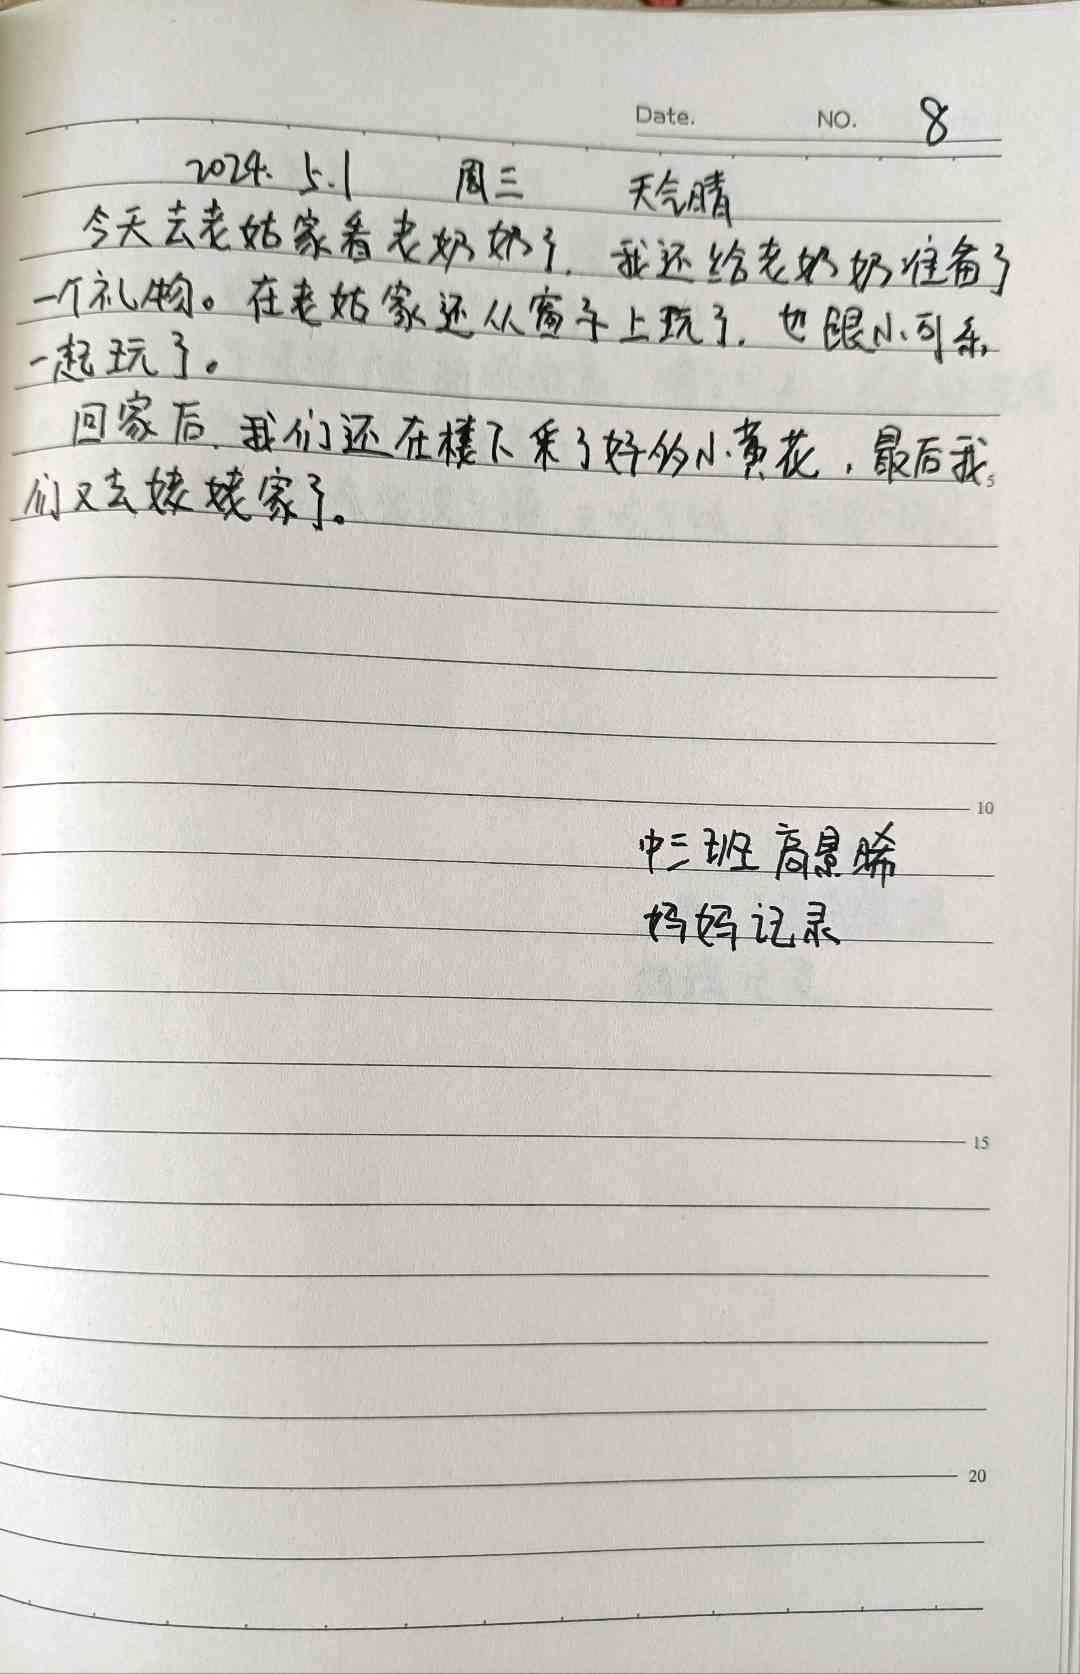 Date. NO. 8
2024. 5.1 周三 天气晴
今天去老姑家看老奶奶了, 我还给老奶奶准备了
一个礼物。在老姑家还从窗子上玩了, 也跟小可乐
一起玩了。
回家后, 我们还在楼下采了好多小黄花, 最后我
5
们又去姥姥家了。
10
中三班 高景晞
妈妈记录
15
20